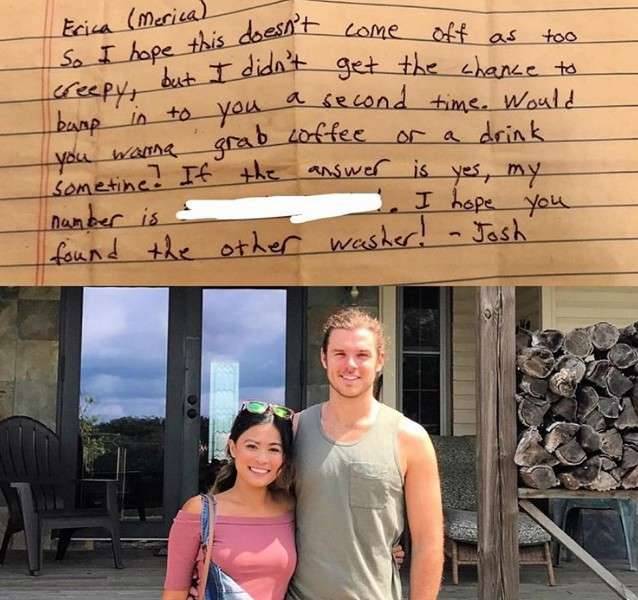 Erica (Merica)
So I hope this doesn't come off as too
creepy, but I didn't get the chance to
bump in to you a second time. Would
you wanna grab coffee or a drink
sometime? If the answer is yes, my
number is . I hope you
found the other washer! - Josh